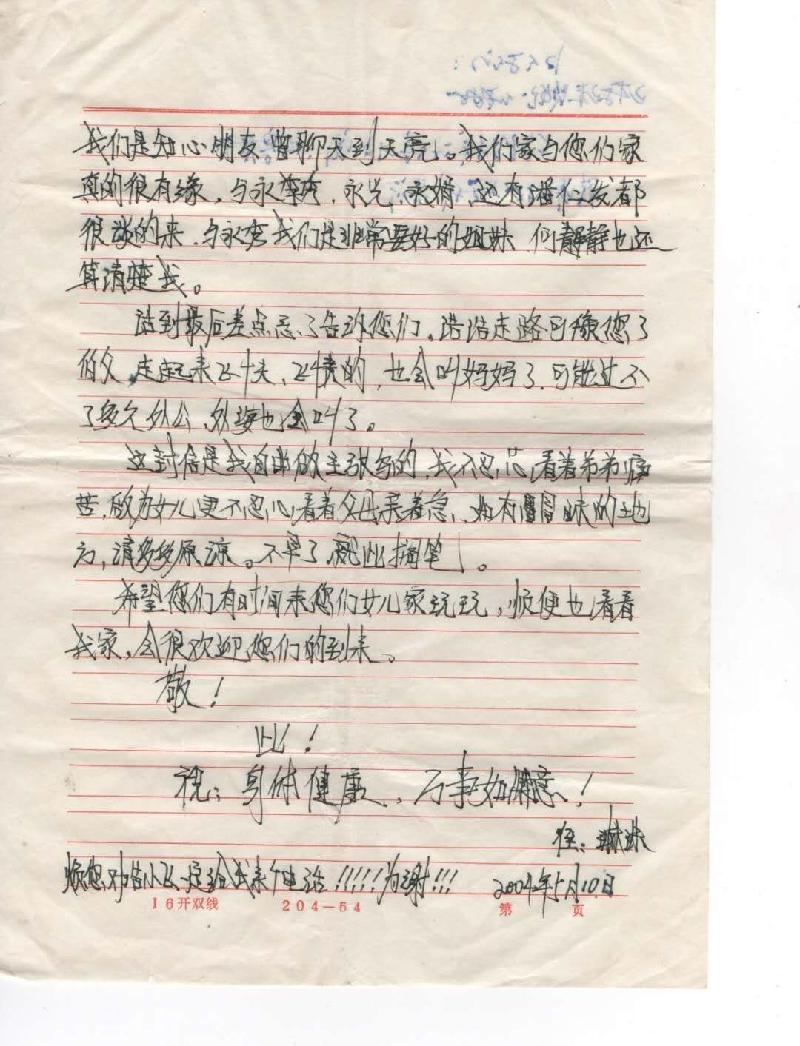 我们是知心朋友,曾聊天到天亮。我们家与您们家
真的很有缘,与永萍,永光,永娟,还有潘仁发都
很谈的来,与永 我们是非常要好的姐妹,何静静也还
算清楚我。
话到最后差点忘了告诉您们,浩浩走路可像您了
伯父,走起来 ,也会叫妈妈了,可能过不
了多久外公,外婆也会叫了。
这封信是我自由做主张写的,我不忍心看着弟弟痛
苦,做为女儿更不忍心看着父母亲着急,如有冒昧的地
方,请多多原谅。不早了,就此搁笔。
希望您们有时间来您们女儿家玩玩,顺便也看看
我家,会很欢迎您们的到来。
敬!
此!
祝:身体健康,万事如意!
任:琳
烦您 小飞一定给我来个电话!!!!!为谢!!! 2004年5月10日
16开双线 204—54 第 页